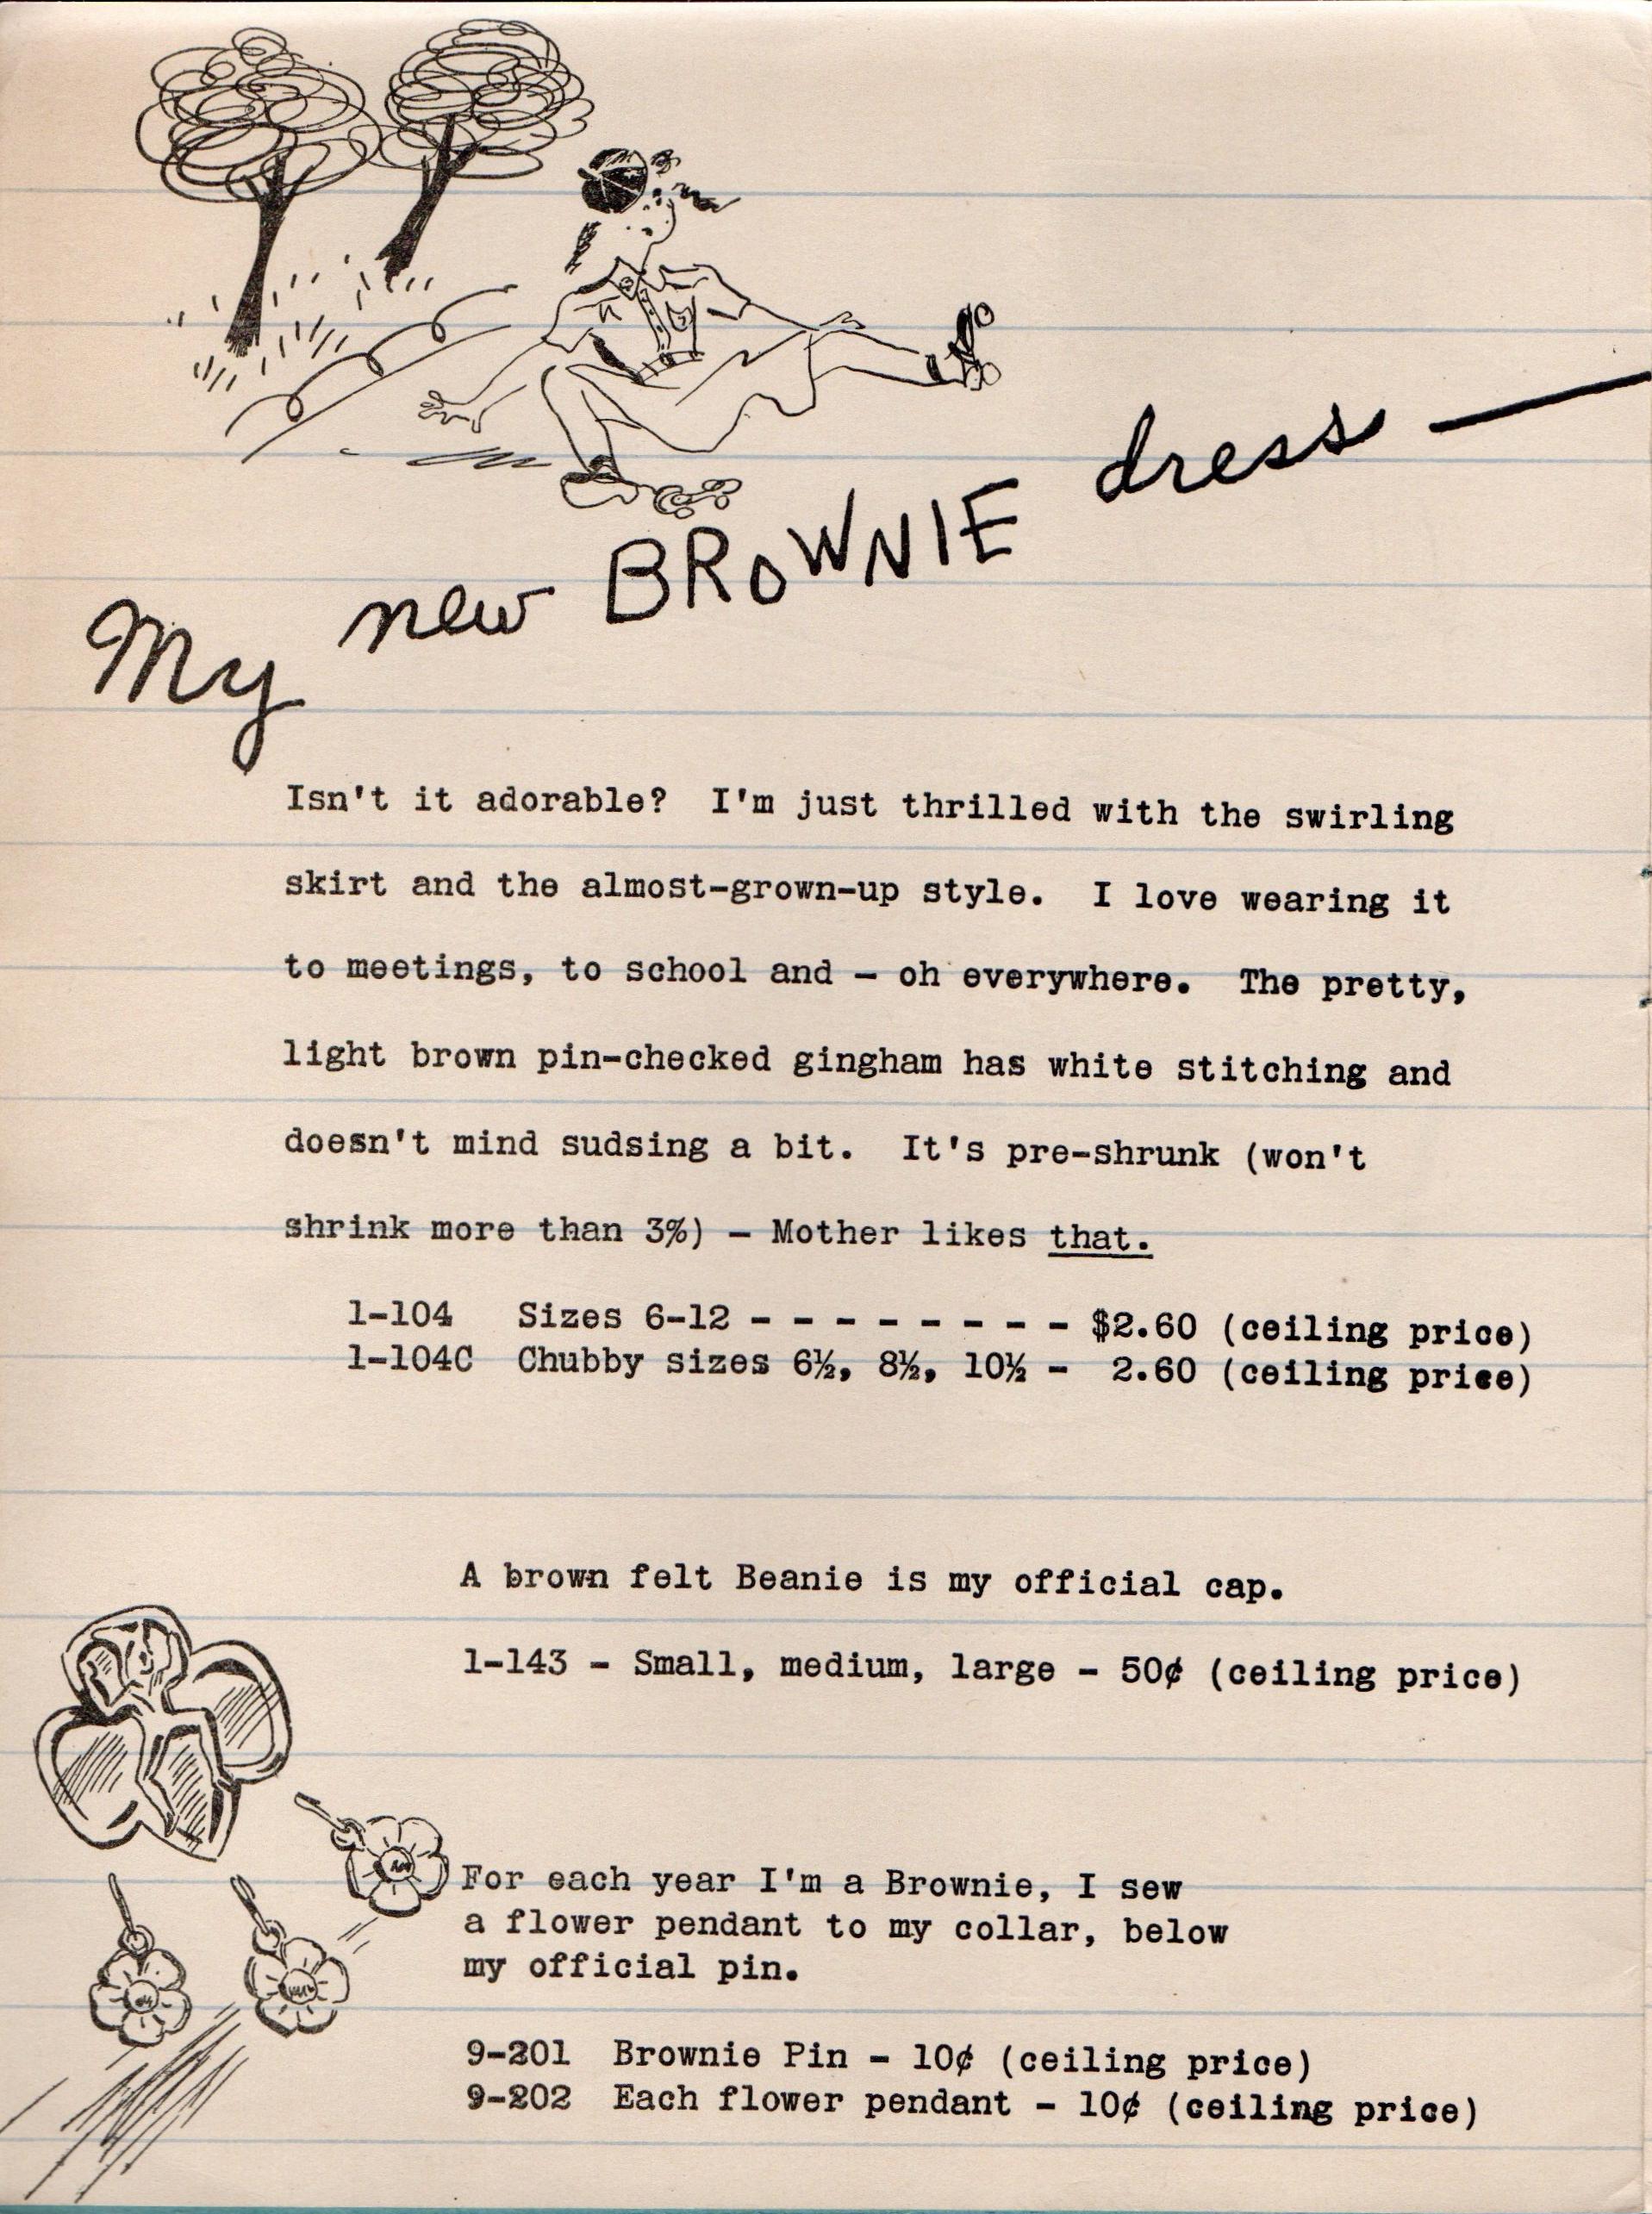 My new BROWNIE dress —
Isn't it adorable? I'm just thrilled with the swirling
skirt and the almost-grown-up style. I love wearing it
to meetings, to school and - oh everywhere. The pretty,
light brown pin-checked gingham has white stitching and
doesn't mind sudsing a bit. It's pre-shrunk (won't
shrink more than 3%) - Mother likes that.
1-104 Sizes 6-12 - - - - - - - - $2.60 (ceiling price)
1-104C Chubby sizes 6½, 8½, 10½ - 2.60 (ceiling price)
A brown felt Beanie is my official cap.
1-143 - Small, medium, large - 50¢ (ceiling price)
For each year I'm a Brownie, I sew
a flower pendant to my collar, below
my official pin.
9-201 Brownie Pin - 10¢ (ceiling price)
9-202 Each flower pendant - 10¢ (ceiling price)